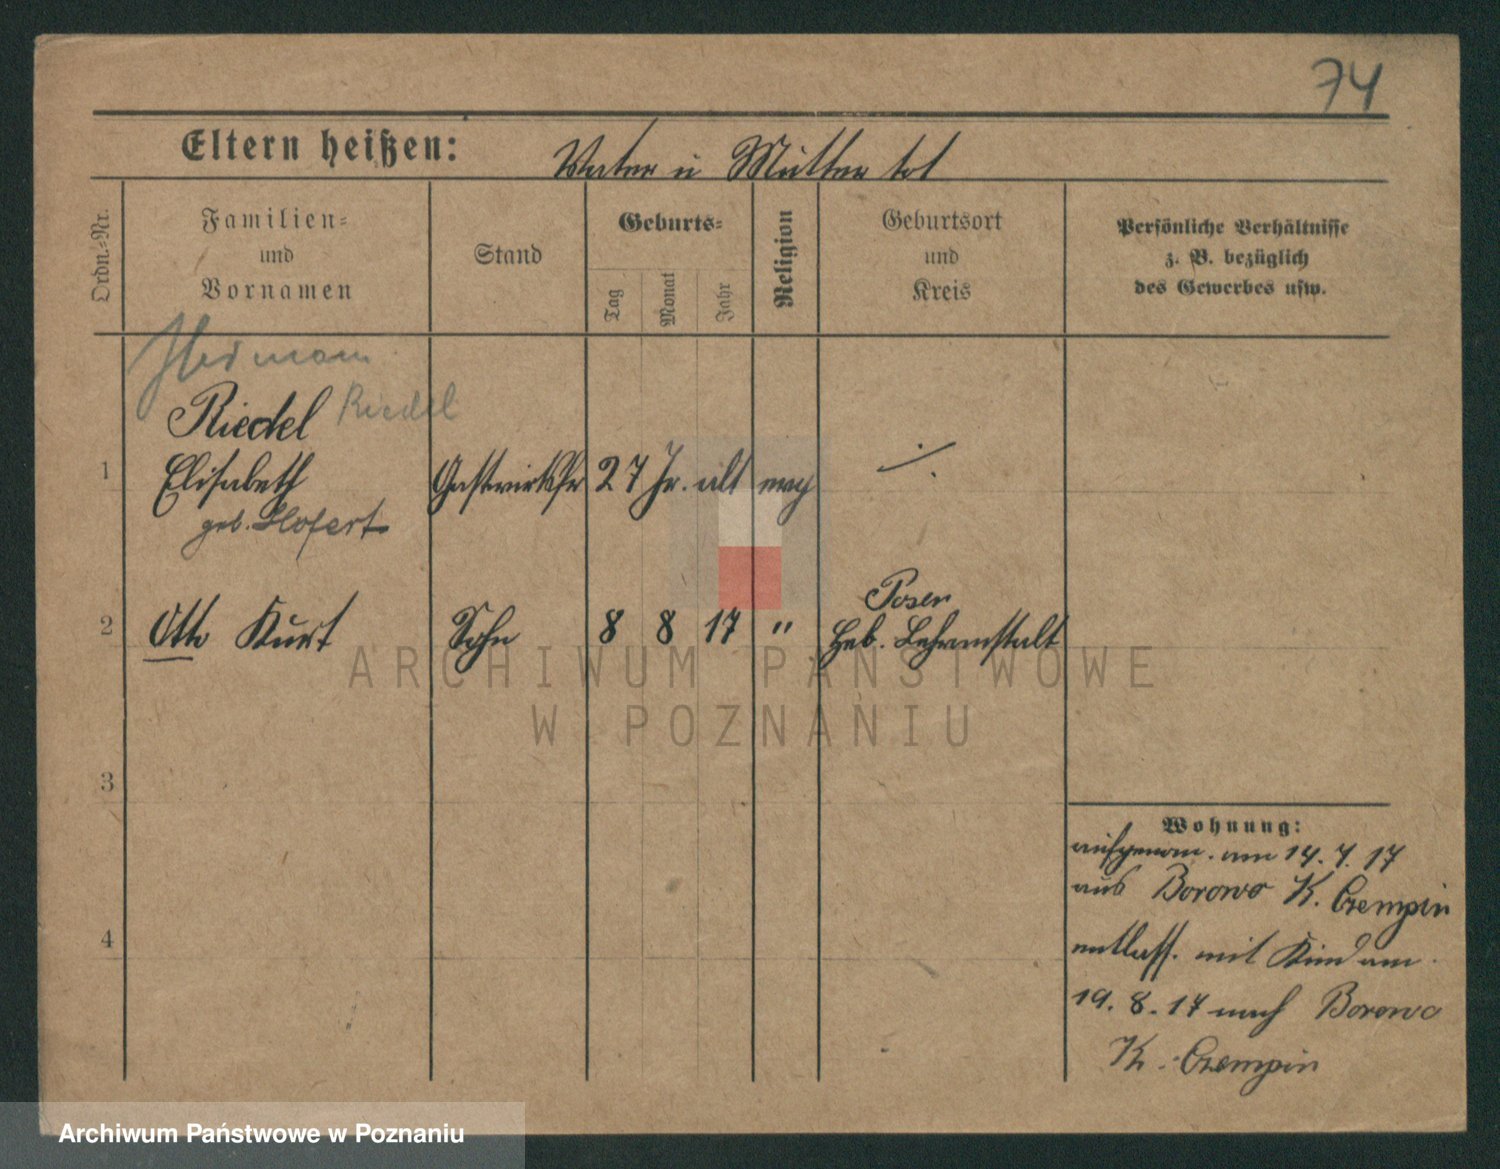 74
Eltern heißen: Vater u Mutter tot
Ordn.-Nr.
Familien-
und
Vornamen
Stand
Geburts-
Tag
Monat
Jahr
Religion
Geburtsort
und
Kreis
Persönliche Verhältnisse
z. B. bezüglich
des Gewerbes usw.
Hermann
Riedel Riedel
1 Elisabeth Gastwirtsfr 27 Jr. alt evg ./.
geb. Hofert
Posen
2 Otto Kurt Sohn 8 8 17 " Heb. Lehranstalt
ARCHIWUM PAŃSTWOWE
W POZNANIU
3
Wohnung:
aufgenom. am 14. 7. 17
aus Borowo K. Czempin
4
entlass. mit Kind am
19. 8. 17 nach Borowo
K. Czempin
Archiwum Państwowe w Poznaniu